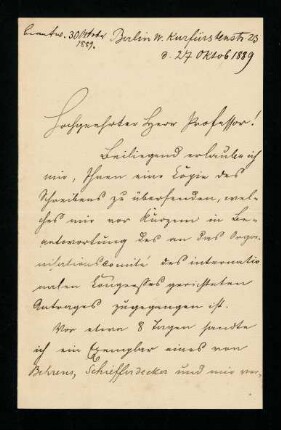 beantw. 30 Oktober 1889.
Berlin W. Kurfürstenstr. 25
d. 27 Oktob 1889
Hochgeehrter Herr Professor!
Beiliegend erlaube ich
mir, Ihnen eine Copie des
Schreibens zu übersenden, wel-
ches mir vor Kurzem in Be-
antwortung des an das Orga-
nisationscomité des internatio-
nalen Congresses gerichteten
Antrages zugegangen ist.
Vor etwa 8 Tagen sandte
ich ein Exemplar eines von
Behrens, Schiefferdecker und mir ver-